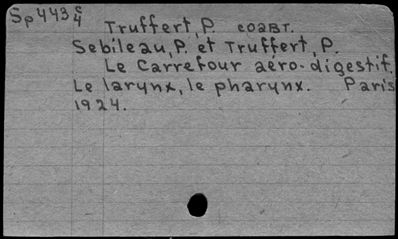 Sp443 S4
Truffert, P. COABT.
Sebileau, P. et Truffert, P.
Le Carrefour aéro-digestif.
Le larynx, le pharynx. Paris
1924.